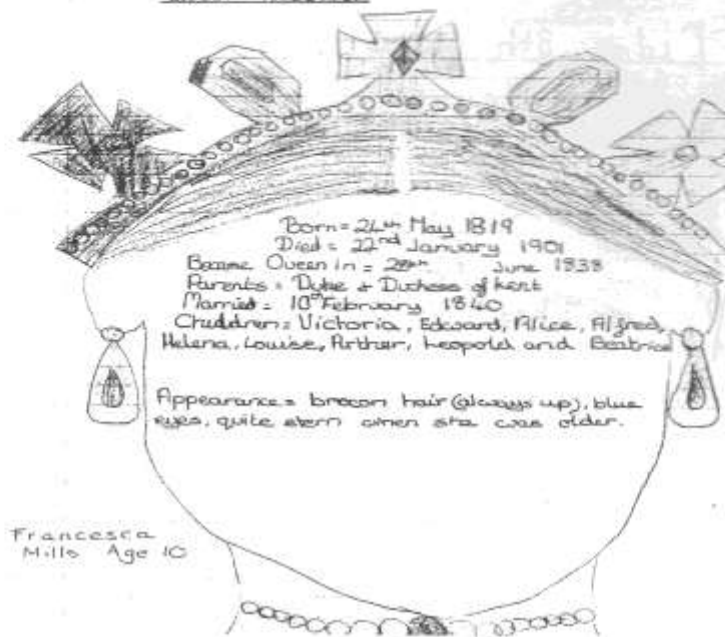 Born = 24th May 1819
Died = 22nd January 1901
Became Queen in = 28th June 1838
Parents = Duke + Duchess of Kent
Married = 10th February 1840
Children = Victoria, Edward, Alice, Alfred,
Helena, Louise, Arthur, Leopold and Beatrice
Appearance = brown hair (always up), blue
eyes, quite stern when she was older.
Francesca
Mills Age 10